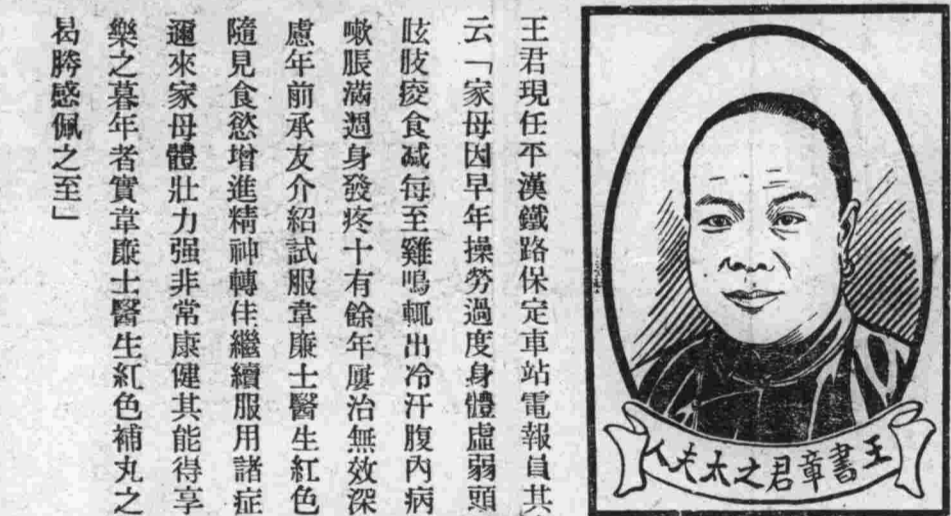 王君現任平漢鐵路保定車站電報員其
云「家母因早年操勞過度身體虛弱頭
眩肢痠食减每至雞鳴輒出冷汗腹內病
嗽脹滿週身發疼十有餘年屢治無效深
慮年前承友介紹試服韋廉士醫生紅色
隨見食慾增進精神轉佳繼續服用諸症
邇來家母體壯力强非常康健其能得享
樂之暮年者實韋廉士醫生紅色補丸之
曷勝感佩之至」
王書章君之太夫人